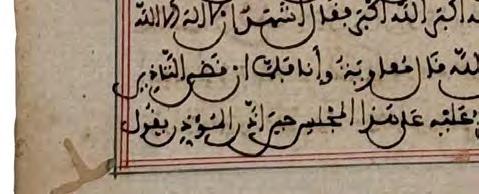 أكبر الله أكبر فقال أشهد أن لا إله إلا الله
الله قال معاوية وأنا فلما أن قضى التأذين
عليه على هذا المجلس حين أذن المؤذن يقول